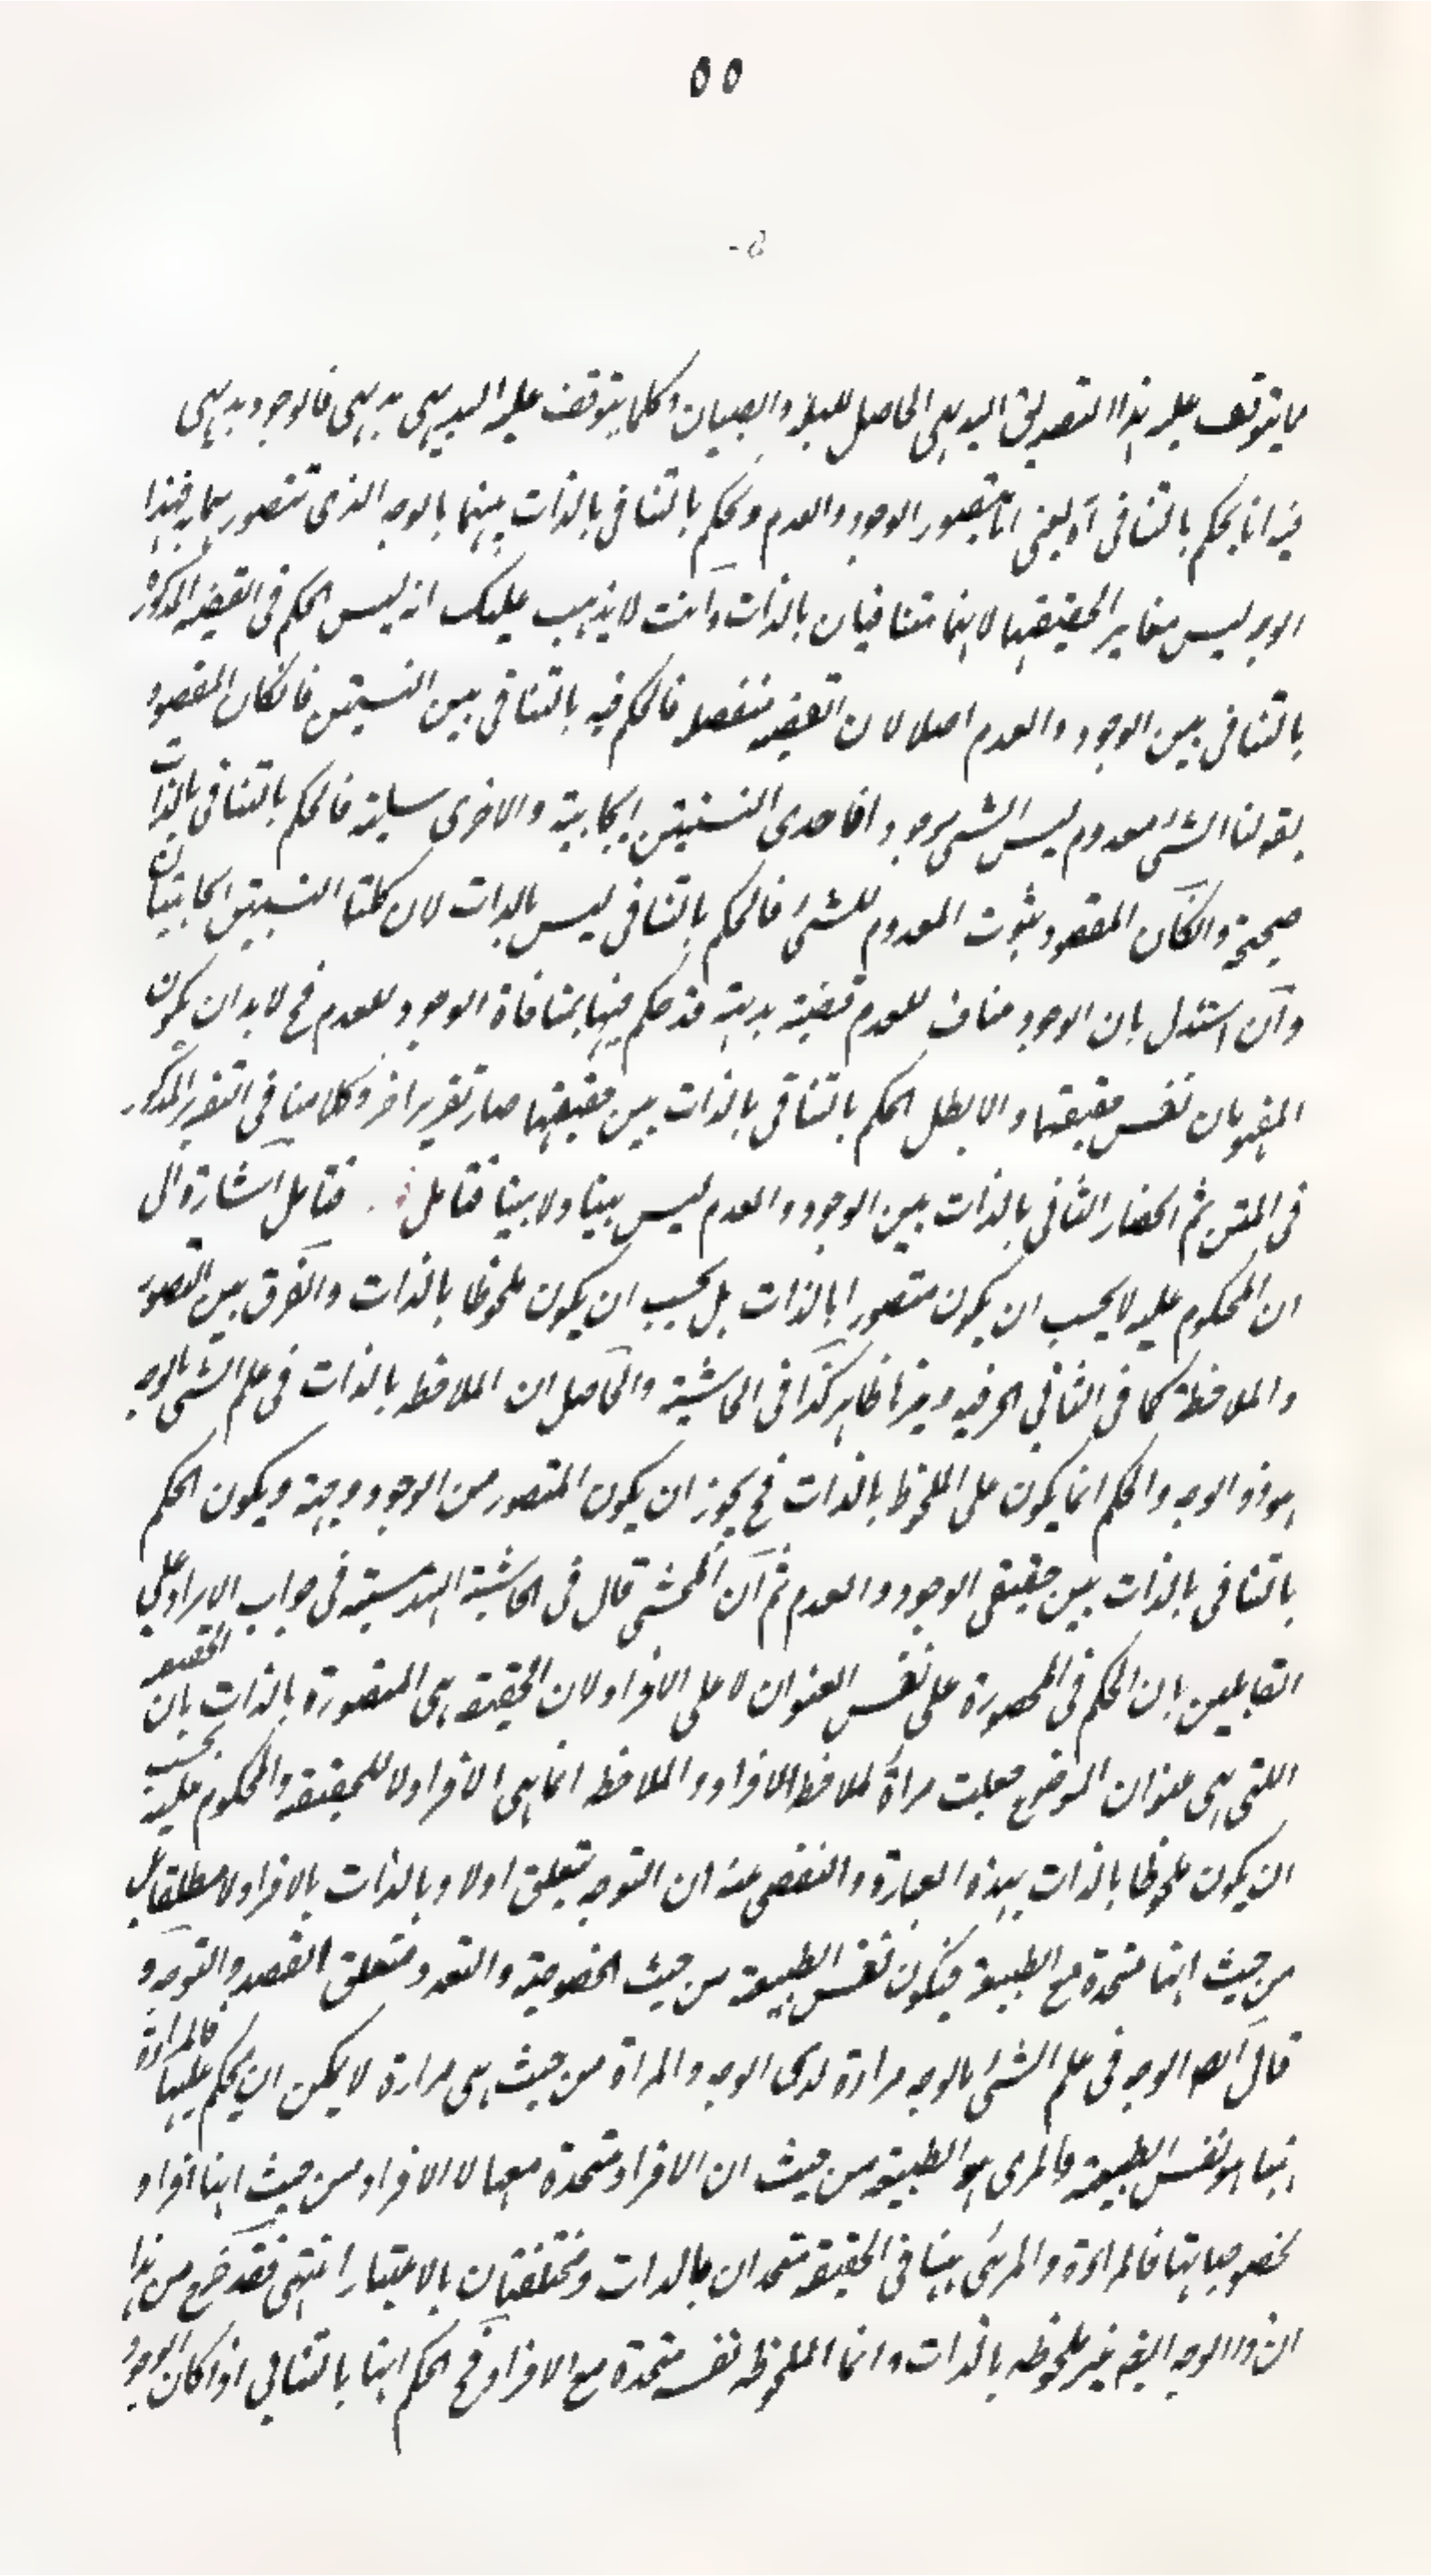 ٥٥
ما يتوقف عليه هذا التصديق البديهي الحاصل للبله والصبيان وكلما يتوقف عليه البديهي بديهي فالوجود بديهي
فيه انا نحكم بالتنافي آه يعني انا نتصور الوجود والعدم ونحكم بالتنافي بالذات بينهما بالوجه الذي نتصور بها فهذا
الوجه ليس مغاير الحقيقتهما لانهما متنافيان بالذات وانت لا يذهب عليك انه ليس الحكم في القضية المذكورة
بالتنافي بين الوجود والعدم اصلا لان القضية منفصلة فالحكم فيه بالتنافي بين النسبتين فانكان المقصود
بقولنا الشئ معدوم ليس الشئ بموجود افاحدى النسبتين ايجابية والاخرى سلبية فالحكم بالتنافي بالذات
صحيح وانكان المقصود ثبوت المعدوم للشئ فالحكم بالتنافي ليس بالذات لان كلتا النسبتين ايجابيتان
وان استدل بان الوجود مناف للعدم قضية بديهية قد حكم فيها بمنافاة الوجود للعدم فح لابد ان يكون
المفهومان نفس حقيقتهما والا بطل الحكم بالتنافي بالذات بين حقيقتهما صار تقريرا اخر وكلامنا في التقرير المذكور
في المتن ثم انحصار التنافي بالذات بين الوجود والعدم ليس بينا ولا مبينا فتامل فتامل اشارة الى
ان المحكوم عليه لا يجب ان يكون متصورا بالذات بل يجب ان يكون ملحوظا بالذات والفرق بين التصور
والملاحظة كما في المعاني الحرفية وغيرها ظاهر كذا في الحاشية والحاصل ان الملاحظ بالذات في علم الشئ بالوجه
هو ذو الوجه والحكم انما يكون على الملحوظ بالذات فح يجوز ان يكون المتصور من الوجود وجهه ويكون الحكم
بالتنافي بالذات بين حقيقتي الوجود والعدم ثم ان المحشي قال في الحاشية المنهية في جواب الايراد على
القائلين بان الحكم في المحصورة على نفس العنوان لا على الافراد لان الحقيقة هي المتصورة بالذات بان الحقيقة
اللتي هي عنوان الموضوع جعلت مراة لملاحظة الافراد والملاحظ انما هي الافراد لا الحقيقة والمحكوم عليه يجب
ان يكون ملحوظا بالذات بهذه العبارة والتفصي عنه ان التوجه يتعلق اولا وبالذات بالافراد لا مطلقا بل
من حيث انها متحدة مع الطبيعة فيكون نفس الطبيعة من حيث الخصوصية والتعدد متعلق القصد والتوجه و
قال الوجه في علم الشئ بالوجه مراة لذي الوجه والمراة من حيث هي مراة لا يمكن ان يحكم عليها فالمراة
ههنا هو نفس الطبيعة والمرئي هو الطبيعة من حيث ان الافراد متحدة معها لا الافراد من حيث انها افراد
بخصوصياتها فالمراة والمرئي ههنا في الحقيقة متحدان بالذات ومختلفتان بالاعتبار انتهى فقد خرج من هذا
ان ذا الوجه ايضا غير ملحوظه بالذات وانما الملحوظة نفسه متحدة مع الافراد فح الحكم ههنا بالتنافي اذا كان الوجود